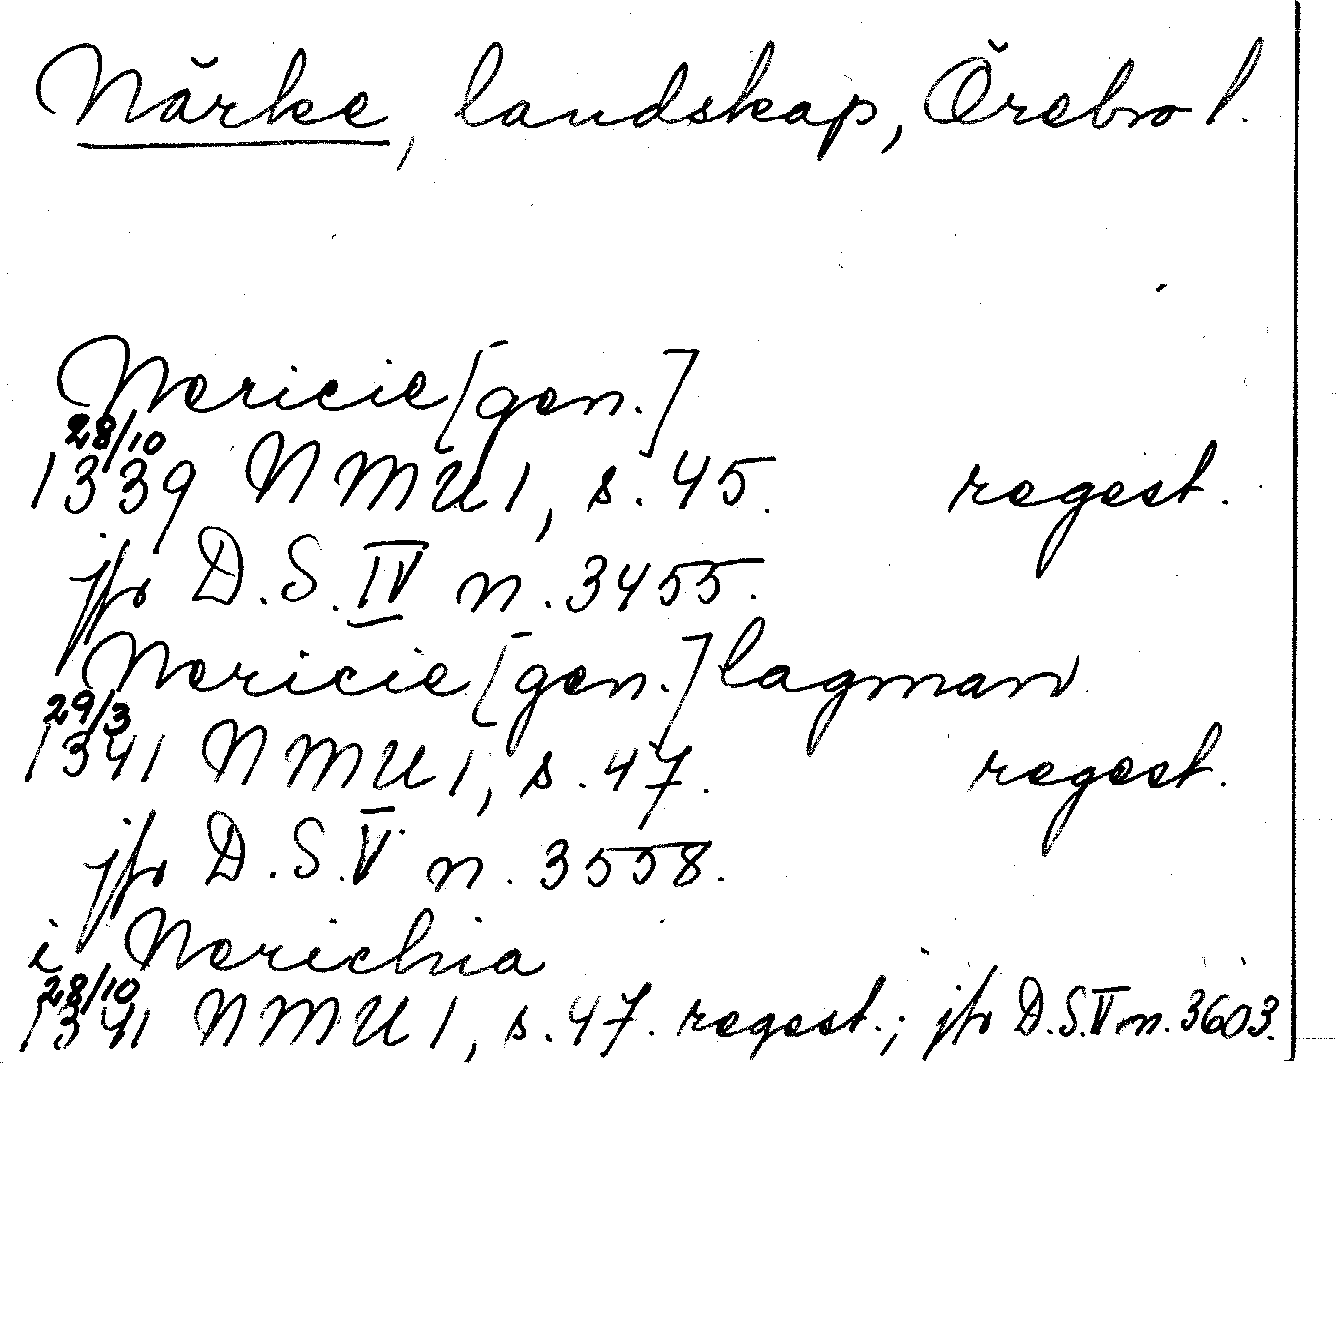 Närke, landskap, Örebro l.
Nericie [gen.]
28/10
1339 NMU 1, s. 45. regest.
jfr D.S. IV n. 3455.
Nericie [gen.] lagman
29/3
1341 NMU 1, s. 47. regest.
jfr D.S. V n. 3558.
i Nerichia
28/10
1341 NMU 1, s. 47. regest.; jfr D.S. V n. 3603.